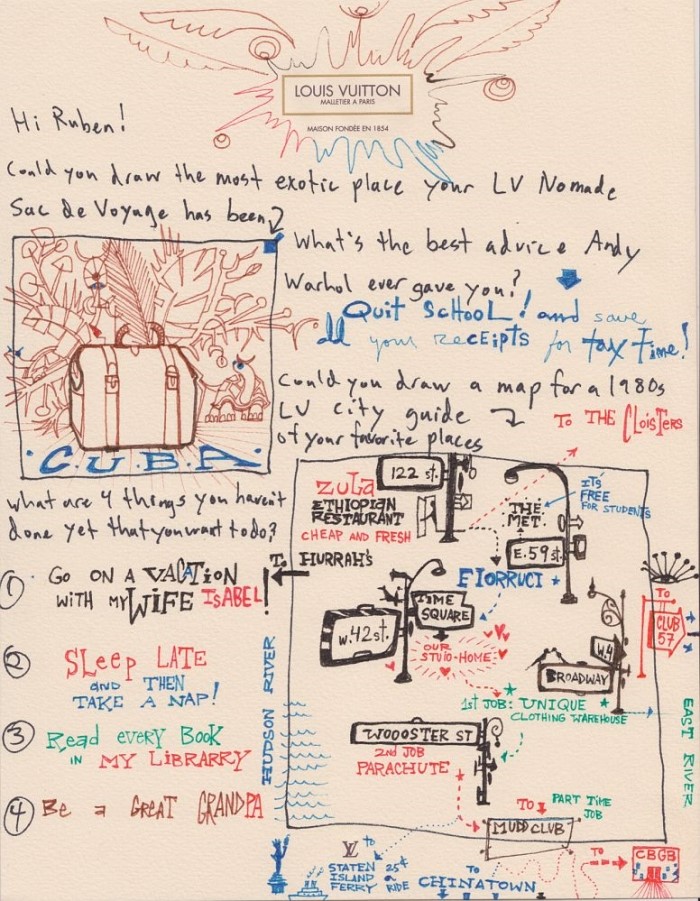 LOUIS VUITTON
MALLETIER A PARIS
MAISON FONDÉE EN 1854
Hi Ruben!
Could you draw the most exotic place your LV Nomade
Sac de Voyage has been
C.U.B.A.
What's the best advice Andy
Warhol ever gave you?
QUIT SCHOOL! and save
all your receipts for tax time!
Could you draw a map for a 1980s
LV city guide
of your favorite places
What are 4 things you haven't
done yet that you want to do?
1 GO ON A VACATION
WITH MY WIFE ISABEL!
2 SLEEP LATE
AND THEN
TAKE A NAP!
3 Read every Book
IN MY LIBRARRY
4 Be a GREAT GRANDPA
TO THE CLOISTERS
122 st.
ZULA
ETHIOPIAN
RESTAURANT
CHEAP AND FRESH
THE
MET.
IT'S
FREE
FOR STUDENTS
To HURRAH'S
E.59st.
FIORRUCI
TIME
SQUARE
W.42st.
OUR
STUIO-HOME
TO
CLUB
57
W.4
BROADWAY
1ST JOB: UNIQUE
CLOTHING WAREHOUSE
HUDSON RIVER
EAST RIVER
WOOOSTER ST
2ND JOB
PARACHUTE
TO
PART TIME
JOB
MUDD CLUB
LV to
STATEN
ISLAND
FERRY
25¢
a
RIDE
CHINATOWN
TO
CBGB